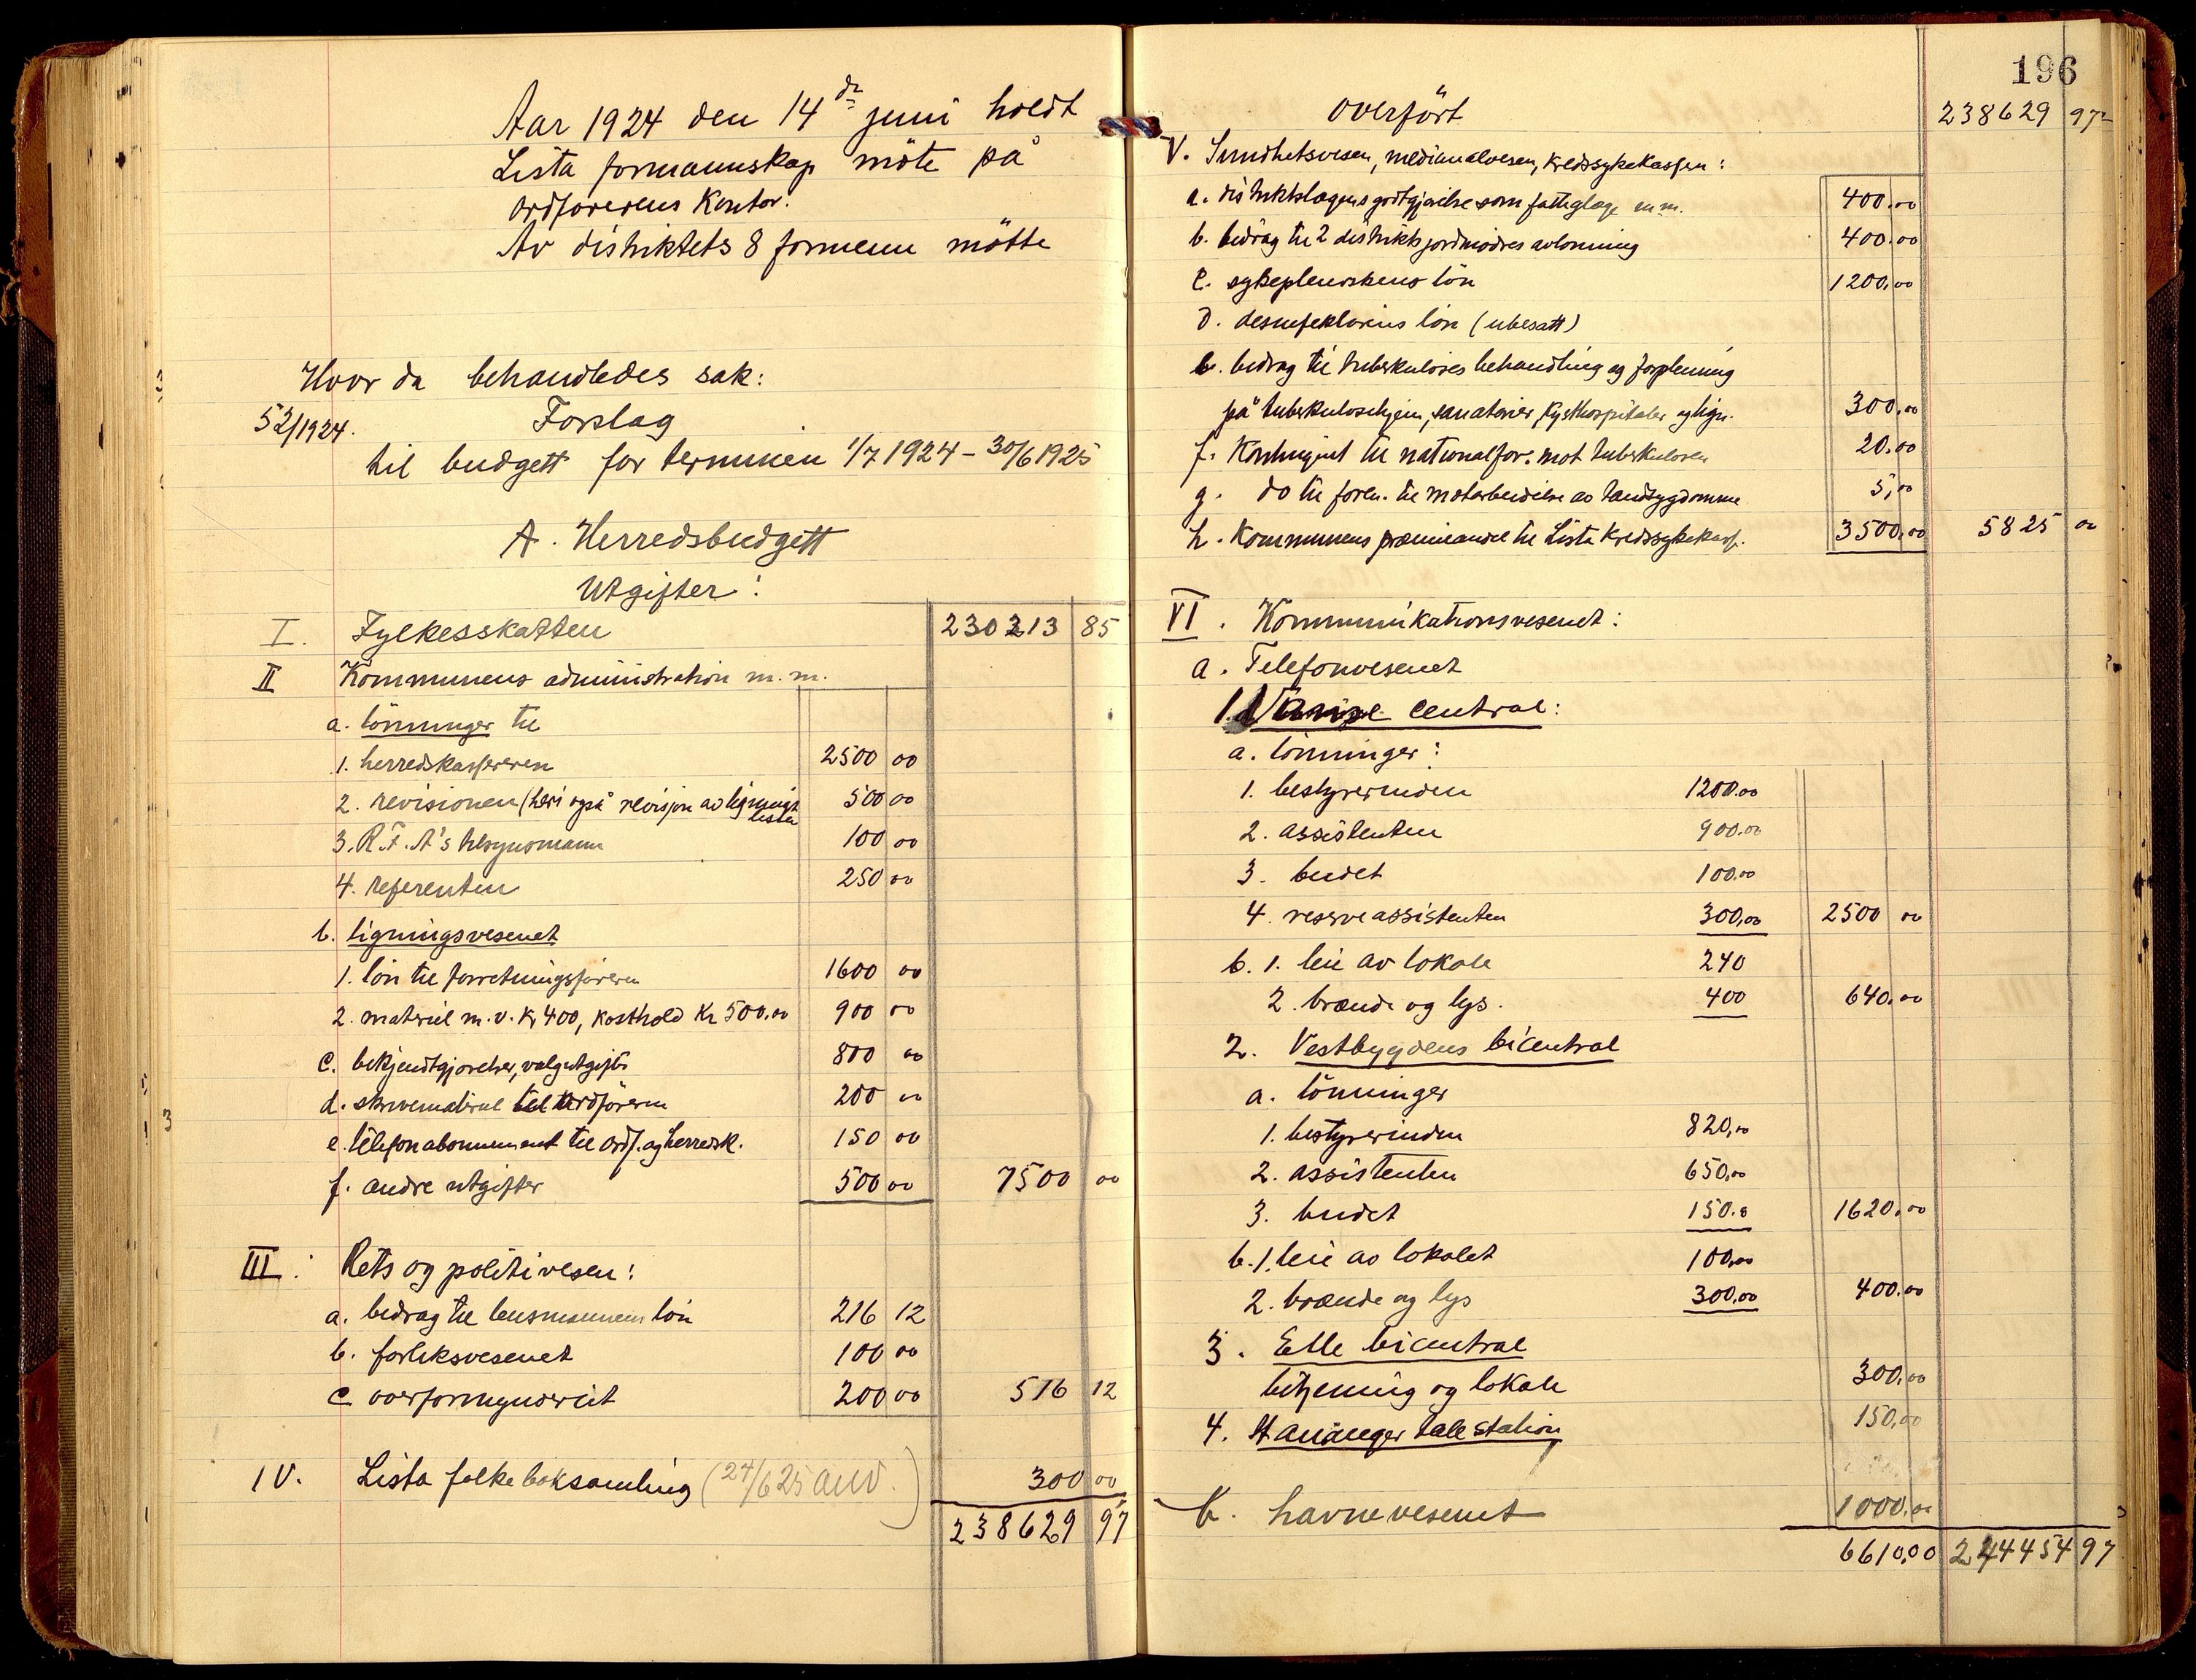 Aar 1924 den 14de juni holdt
Lista formannskap møte på
ordførerens kontor.
Av distriktets 8 formenn møtte
Hvor da behandledes sak:
52/1924. Forslag
til budgett for terminen 1/7 1924 - 30/6 1925
A. Herredsbudgett
Utgifter:
I. Fylkesskatten 230213 85
II Kommunens administration m.m.
a. lønninger til
1. herredskassereren 2500 00
2. revisionen (heri også revisjon av lignings
lista 500 00
3. R.F.A's tilsynsmann 100 00
4. referenten 250 00
b. ligningsvesenet
1. løn til forretningsføreren 1600 00
2. materiel m.v. Kr 400, kosthold Kr 500.00 900 00
c. bekjendtgjørelser, valgutgifter 800 00
d. skrivemateriel til ordføreren 200 00
e. telefonabonnement til ordf. og herredsk. 150 00
f. andre utgifter 500 00 7500 00
III. Rets og politivesen:
a. bidrag til lensmannens løn 216 12
b. forliksvesenet 100 00
c overformynderiet 200 00 516 12
IV. Lista folkeboksamling (24/6 25 anv.) 300 00
238629 97
196
overført 238629 97
V. Sundhetsvesen, medicinalvesen, kredssykekassen:
a. distriktslægens godtgjørelse som fattiglæge m.m. 400.00
b. bidrag til 2 distriktsjordmødres avlønning 400.00
c. sykepleierskens løn 1200.00
d. desinfektørens løn (ubesatt)
e. bidrag til tuberkuløses behandling og forpleining
på tuberkulosehjem, sanatorier, kysthospitaler og lign. 300.00
f. Kontingent til nationalfor. mot tuberkulosen 20.00
g. do til foren. til motarbeidelse av tandsygdomme 5,00
h. Kommunens præmieandel til Lista Kredssykekasse. 3500.00 5825 00
VI. Kommunikationsvesenet:
a. Telefonvesenet
1. Vanse central:
a. lønninger:
1. bestyrerinden 1200.00
2. assistenten 900.00
3. budet 100.00
4. reserveassistenten 300,00 2500 00
b. 1. leie av lokale 240
2. brænde og lys. 400 640.00
2. Vestbygdens bicentral
a. lønninger
1. bestyrerinden 820,00
2. assistenten 650,00
3. budet 150.0 1620.00
b. 1. leie av lokalet 100,00
2. brænde og lys 300.00 400.00
3. Elle bicentral
betjening og lokale 300.00
4. Stananger talestation 150,00
b. havnevesenet 1000.00
6610,00 244454 97